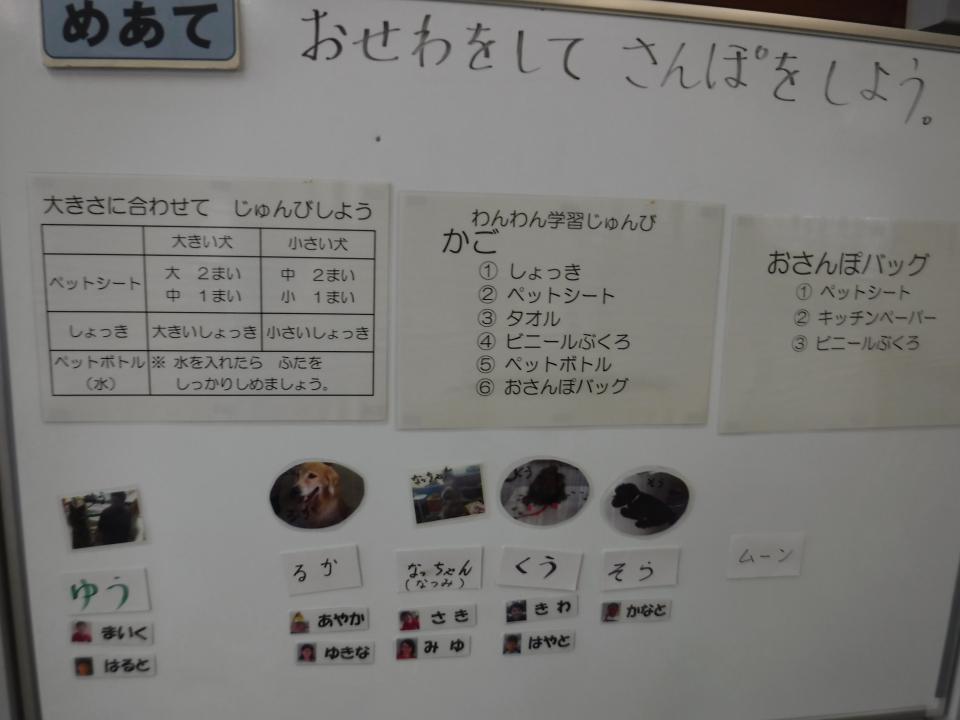 めあて
おせわをして さんぽをしよう。
大きさに合わせて じゅんびしよう
大きい犬 小さい犬
ペットシート 大 2まい 中 2まい
中 1まい 小 1まい
しょっき 大きいしょっき 小さいしょっき
ペットボトル(水) ※ 水を入れたら ふたを
しっかりしめましょう。
わんわん学習じゅんび
かご
① しょっき
② ペットシート
③ タオル
④ ビニールぶくろ
⑤ ペットボトル
⑥ おさんぽバッグ
おさんぽバッグ
① ペットシート
② キッチンペーパー
③ ビニールぶくろ
なっちゃん
ゆう
まいく
はると
るか
あやか
ゆきな
なっちゃん
(なつみ)
さき
みゆ
くう
きわ
はやと
そら
かなと
ムーン